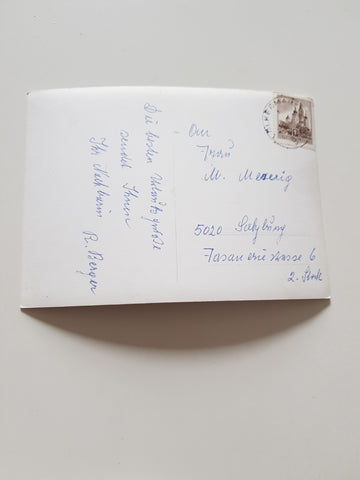 Die besten Urlaubsgrüße
sendet Ihnen
Ihr Nachbarin
R. Berger
An
Frau
M. Mennig
5020 Salzburg
Fasaneriestrasse 6
2. Stock